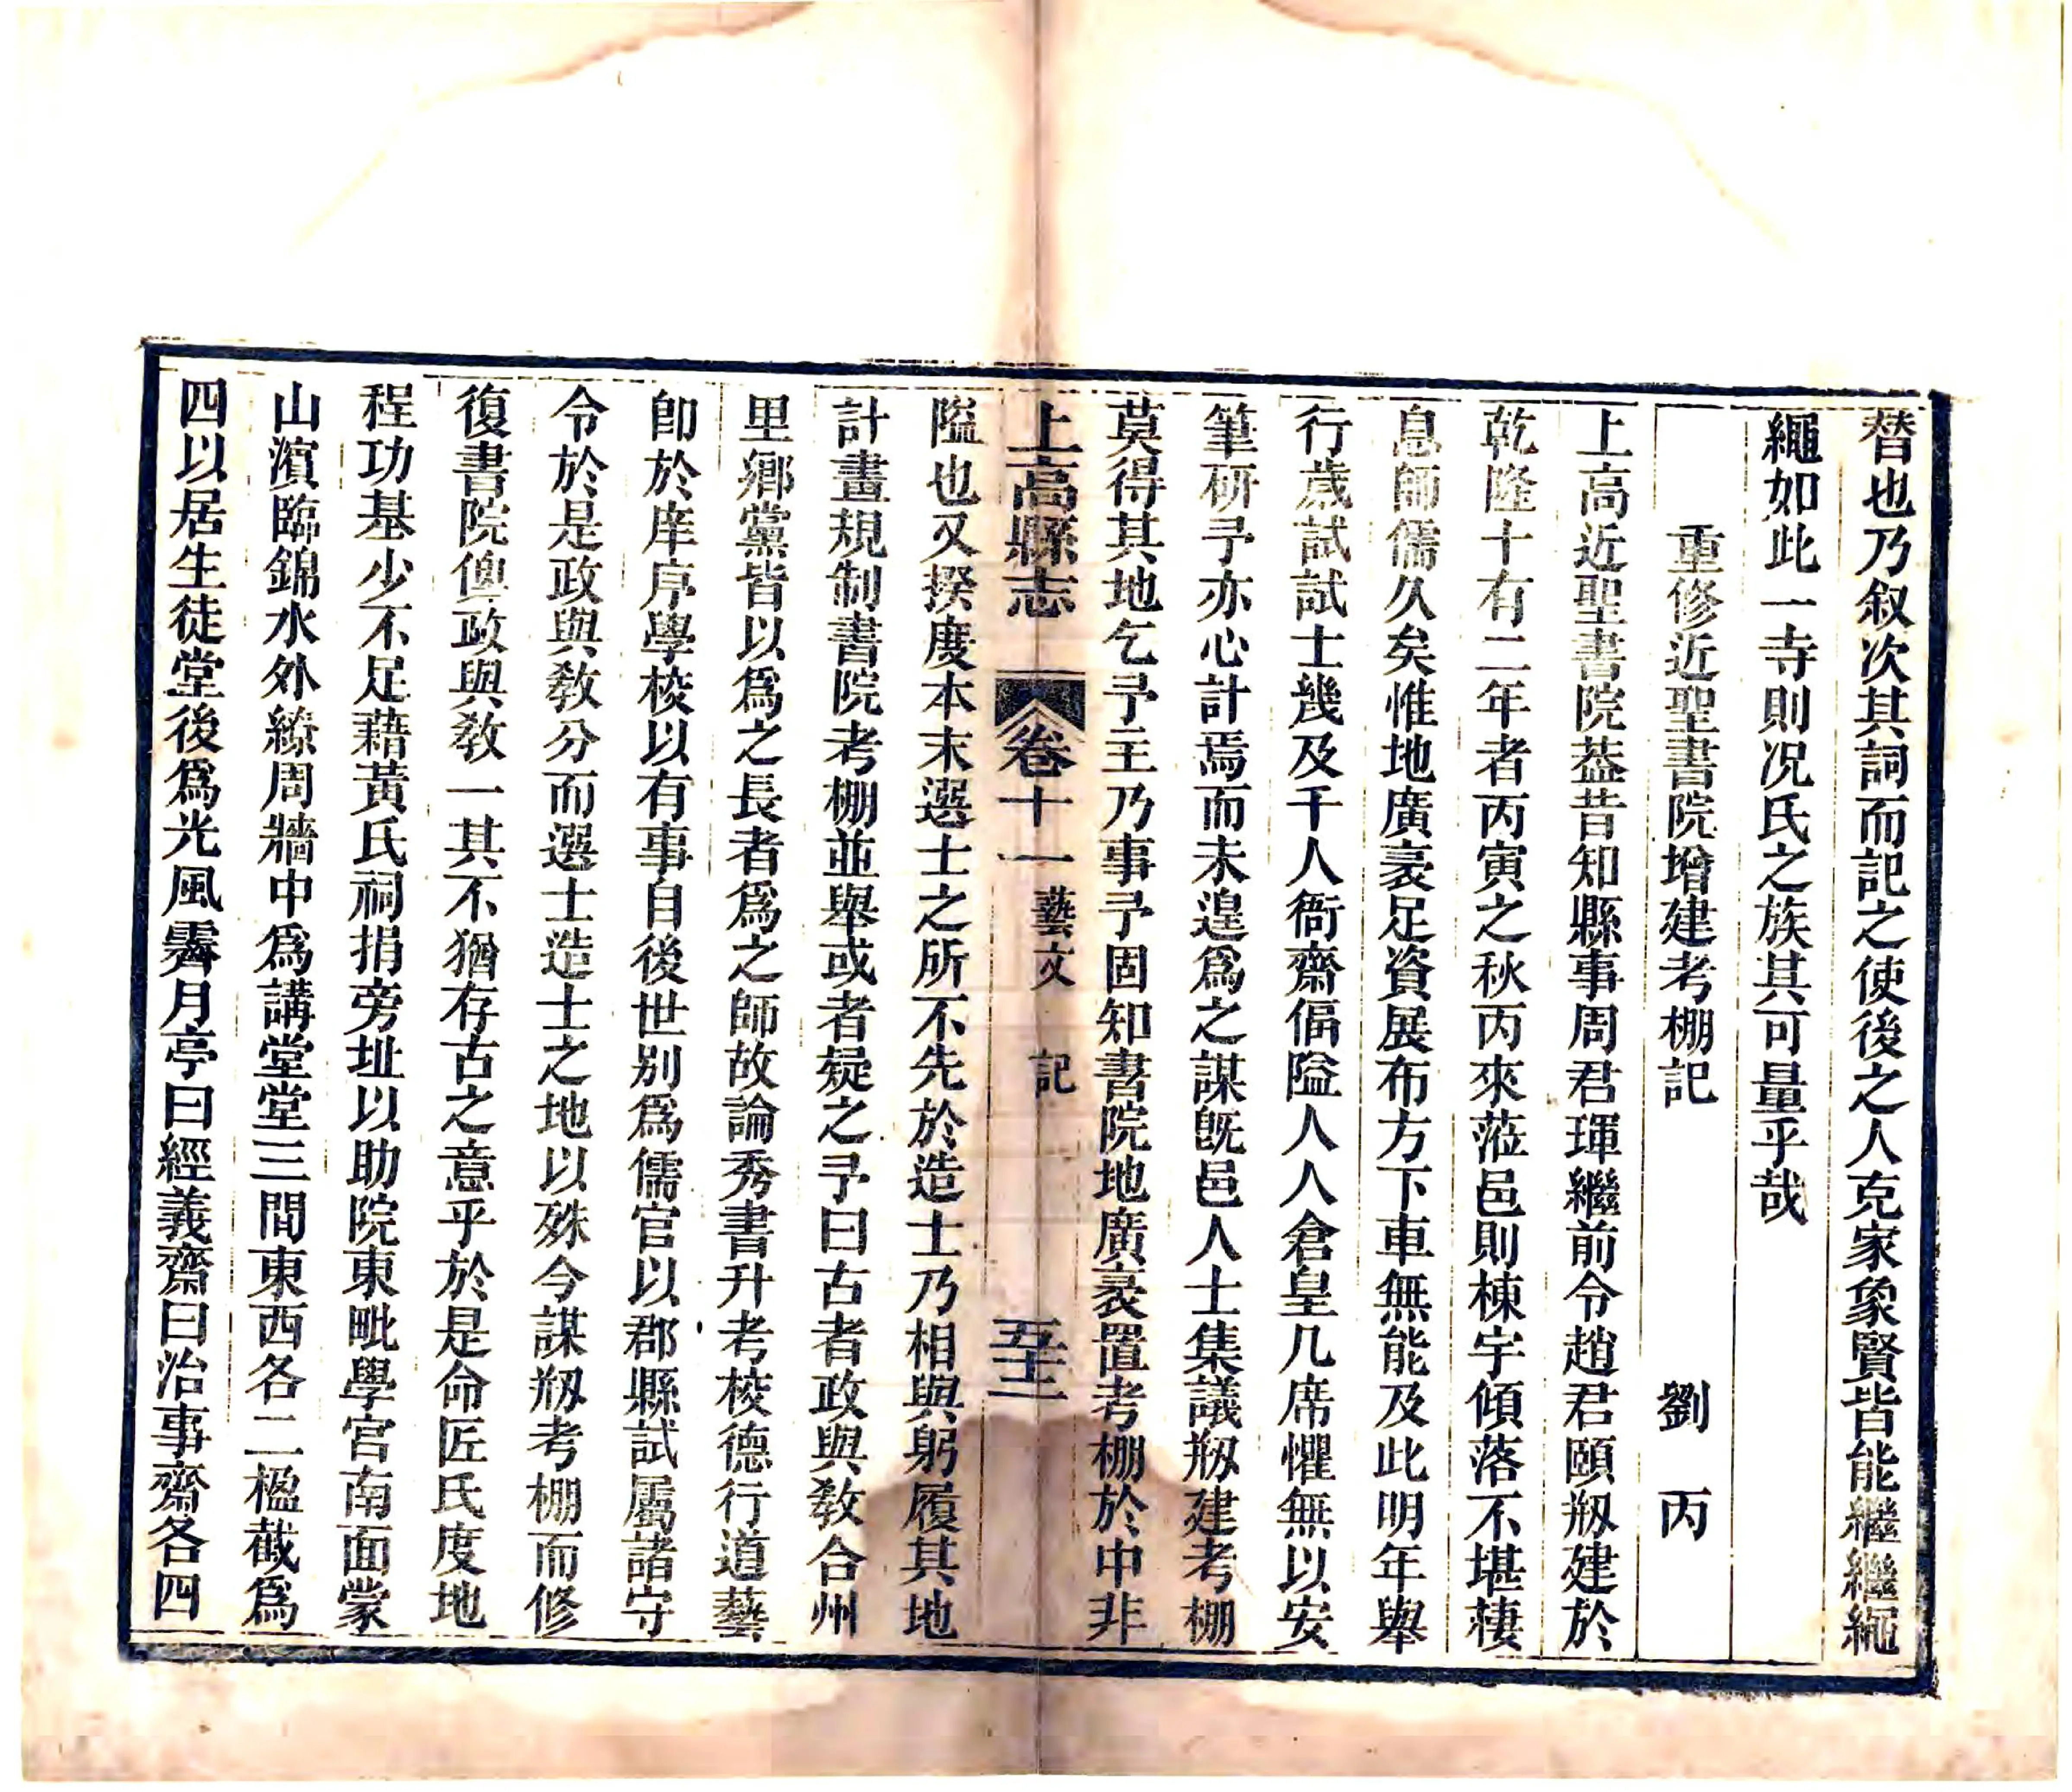 替也乃叙次其詞而記之使後之人克家象賢皆能繼繼繩
繩如此一寺則况氏之族其可量乎哉
重修近聖書院增建考棚記 劉丙
上高近聖書院葢昔知縣事周君琿繼前令趙君頤剏建於
乾隆十有二年者丙寅之秋丙來蒞邑則棟宇傾落不堪棲
息師儒久矣惟地廣袤足資展布方下車無能及此明年舉
行歲試試士幾及千人衙齋偪隘人人倉皇几席懼無以安
筆研予亦心計焉而未遑爲之謀旣邑人士集議剏建考棚
莫得其地乞予主乃事予固知書院地廣袤置考棚於中非
上高縣志 卷十一 藝文 記 五十二
隘也又揆度本末選士之所不先於造士乃相與躬履其地
計畫規制書院考棚並舉或者疑之予曰古者政與敎合州
里鄉黨皆以爲之長者爲之師故論秀書升考校德行道藝
卽於庠序學校以有事自後世别爲儒官以郡縣試屬諸守
令於是政與敎分而選士造士之地以殊今謀剏考棚而修
復書院俾政與敎一其不猶存古之意乎於是命匠氏度地
程功基少不足藉黃氏祠捐旁址以助院東毗學宮南面蒙
山濱臨錦水外繚周牆中爲講堂堂三間東西各二楹截爲
四以居生徒堂後爲光風霽月亭曰經義齋曰治事齋各四